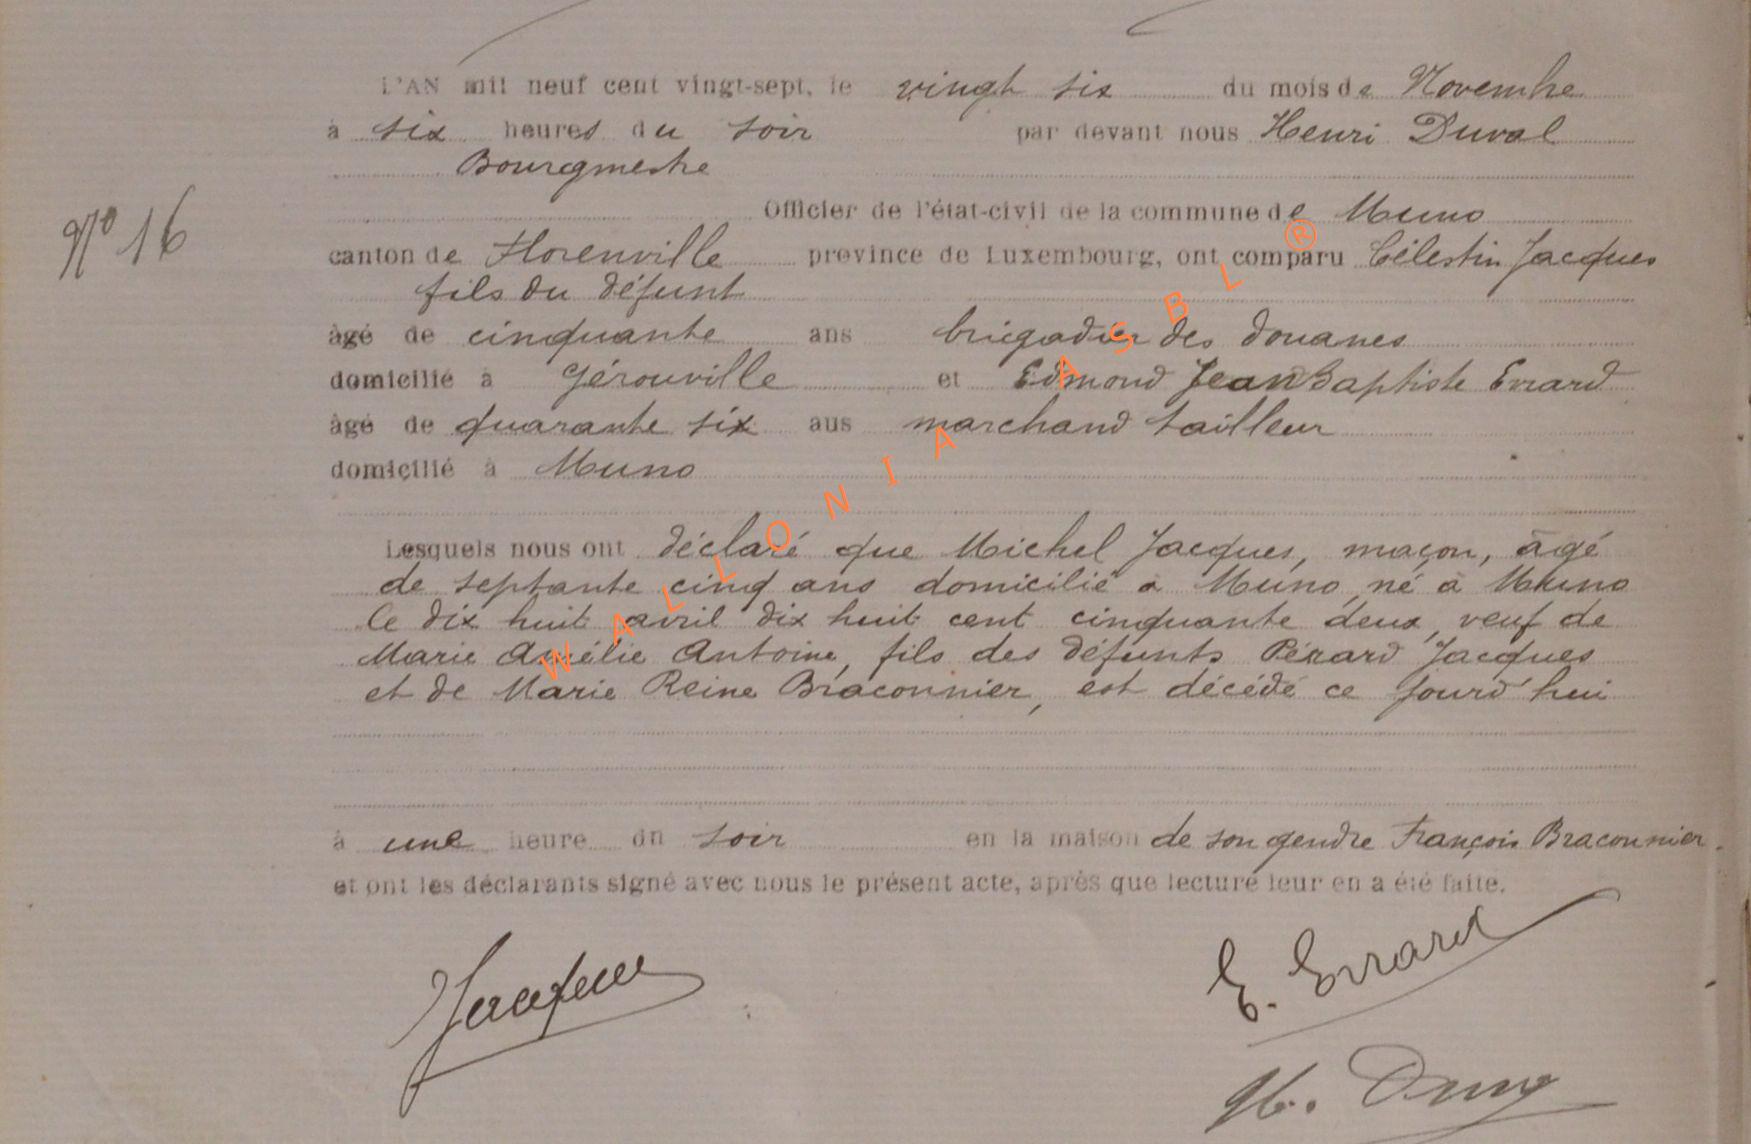 L'AN mil neuf cent vingt-sept, le vingt six du mois de Novembre
à six heures du soir par devant nous Henri Duval
Bourgmestre
Officier de l'état-civil de la commune de Muno
N° 16
canton de Florenville province de Luxembourg, ont comparu Célestin Jacques
fils du défunt
âgé de cinquante ans brigadier des douanes
domicilié à Gérouville et Edmond Jean Baptiste Evrard
âgé de quarante six ans marchand tailleur
domicilié à Muno
Lesquels nous ont déclaré que Michel Jacques, maçon, âgé
de septante cinq ans domicilié à Muno, né à Muno
le dix huit avril dix huit cent cinquante deux, veuf de
Marie Amélie Antoine, fils des défunts Pérard Jacques
et de Marie Reine Braconnier, est décédé ce jourd'hui
à une heure du soir en la maison de son gendre François Braconnier.
et ont les déclarants signé avec nous le présent acte, après que lecture leur en a été faite.
Jacques
E. Evrard
H. Duval
WALLONIA ASBL ®